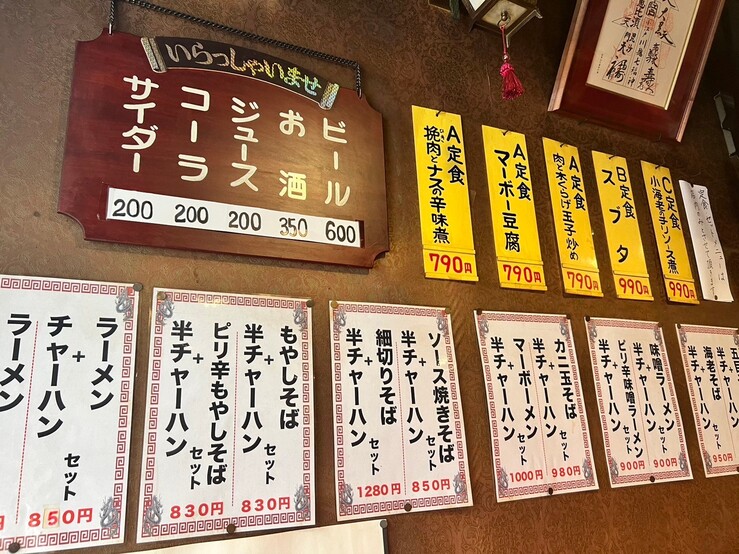 いらっしゃいませ
ビール
お酒
ジュース
コーラ
サイダー
200
200
200
350
600
A定食
挽肉とナスの辛味煮
790円
A定食
マーボー豆腐
790円
A定食
肉と木くらげ玉子炒め
790円
B定食
スブタ
990円
C定食
小海老のチリソース煮
990円
ラーメン
+
チャーハン
セット
850円
ラーメン
もやしそば
+
半チャーハン
セット
830円
ピリ辛もやしそば
+
半チャーハン
セット
830円
ソース焼きそば
+
半チャーハン
セット
850円
細切りそば
+
半チャーハン
セット
1280円
カニ玉そば
+
半チャーハン
セット
980円
マーボーメン
+
半チャーハン
セット
1000円
味噌ラーメン
+
半チャーハン
セット
900円
ピリ辛味噌ラーメン
+
半チャーハン
セット
900円
海老そば
+
半チャーハン
セット
950円